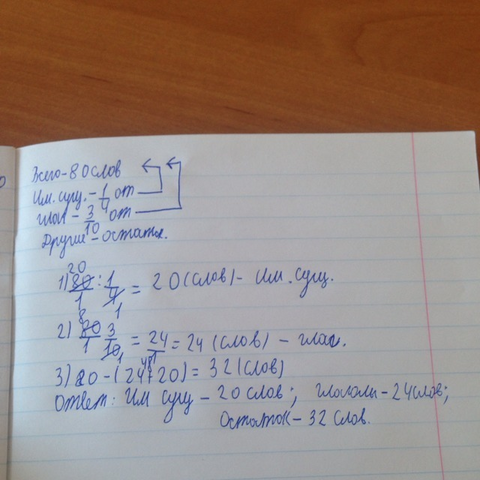 Всего-80 слов
Им. сущ. - 1/4 от
глаг - 3/10 от
Другие - остаток.
1) 80/1 : 1/4 = 20 (слов) - Им. сущ.
2) 80/1 3/10 = 24/1 = 24 (слов) - глаг.
3) 80 - (24+20) = 32 (слов)
Ответ: Им сущ - 20 слов; глаголы - 24 слов;
Остаток - 32 слов.